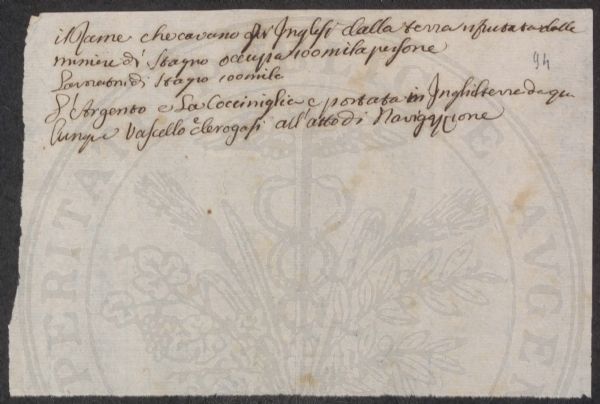 il Rame che cavano gl' Inglesi dalla terra rifiutata dalle
miniere di stagno occupa 100mila persone
Lavoratori di stagno 100mila
L'Argento e La Cocciniglia è portata in Inghilterra da qua
lunque Vascello e derogasi all'atto di Navigazione
94
PERITA
AVGE